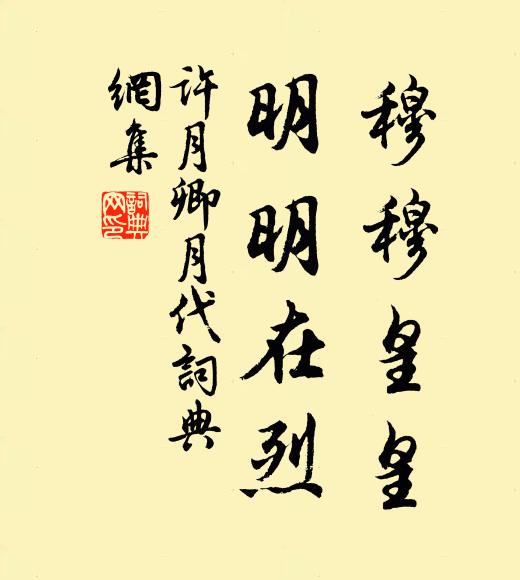 穆穆皇皇
明明在烈
許月卿月代詞典
網集
詞典
网印